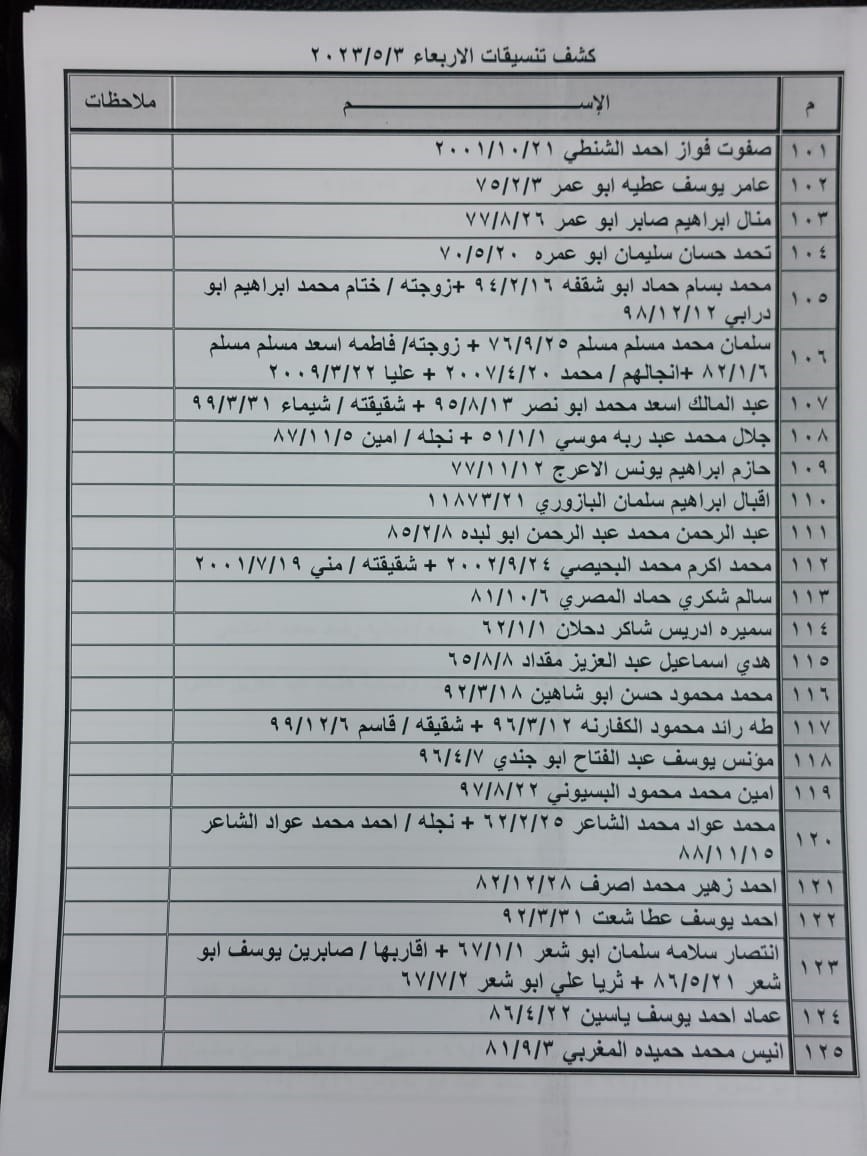 كشف تنسيقات الاربعاء ٢٠٢٣/٥/٣
م الإســـــــــــــم ملاحظات
١٠١ صفوت فواز احمد الشنطي ٢٠٠١/١٠/٢١
١٠٢ عامر يوسف عطيه ابو عمر ٧٥/٢/٣
١٠٣ منال ابراهيم صابر ابو عمر ٧٧/٨/٢٦
١٠٤ تحمد حسان سليمان ابو عمره ٧٠/٥/٢٠
١٠٥ محمد بسام حماد ابو شقفه ٩٤/٢/١٦ +زوجته / ختام محمد ابراهيم ابو
درابي ٩٨/١٢/١٢
١٠٦ سلمان محمد مسلم مسلم ٧٦/٩/٢٥ + زوجته/ فاطمه اسعد مسلم مسلم
٨٢/١/٦ +انجالهم / محمد ٢٠٠٧/٤/٢٠ + عليا ٢٠٠٩/٣/٢٢
١٠٧ عبد المالك اسعد محمد ابو نصر ٩٥/٨/١٣ + شقيقته / شيماء ٩٩/٣/٣١
١٠٨ جلال محمد عبد ربه موسي ٥١/١/١ + نجله / امين ٨٧/١١/٥
١٠٩ حازم ابراهيم يونس الاعرج ٧٧/١١/١٢
١١٠ اقبال ابراهيم سلمان البازوري ١١٨٧٣/٢١
١١١ عبد الرحمن محمد عبد الرحمن ابو لبده ٨٥/٢/٨
١١٢ محمد اكرم محمد البحيصي ٢٠٠٢/٩/٢٤ + شقيقته / مني ٢٠٠١/٧/١٩
١١٣ سالم شكري حماد المصري ٨١/١٠/٦
١١٤ سميره ادريس شاكر دحلان ٦٢/١/١
١١٥ هدي اسماعيل عبد العزيز مقداد ٦٥/٨/٨
١١٦ محمد محمود حسن ابو شاهين ٩٢/٣/١٨
١١٧ طه رائد محمود الكفارنه ٩٦/٣/١٢ + شقيقه / قاسم ٩٩/١٢/٦
١١٨ مؤنس يوسف عبد الفتاح ابو جندي ٩٦/٤/٧
١١٩ امين محمد محمود البسيوني ٩٧/٨/٢٢
١٢٠ محمد عواد محمد الشاعر ٦٢/٢/٢٥ + نجله / احمد محمد عواد الشاعر
٨٨/١١/١٥
١٢١ احمد زهير محمد اصرف ٨٢/١٢/٢٨
١٢٢ احمد يوسف عطا شعت ٩٢/٣/٣١
١٢٣ انتصار سلامه سلمان ابو شعر ٦٧/١/١ + اقاربها / صابرين يوسف ابو
شعر ٨٦/٥/٢١ + ثريا علي ابو شعر ٦٧/٧/٢
١٢٤ عماد احمد يوسف ياسين ٨٦/٤/٢٢
١٢٥ انيس محمد حميده المغربي ٨١/٩/٣